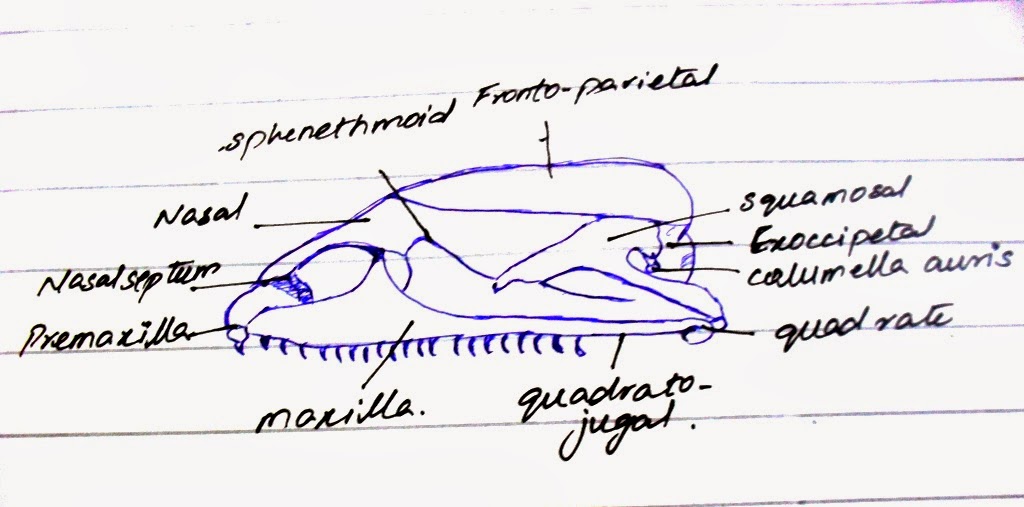 Fronto-parietal
sphenethmoid
Nasal
squamosal
Exoccipetal
columella auris
Nasalseptum
Premaxilla
quadrate
maxilla.
quadrato-
jugal.